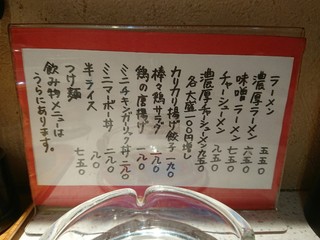 ラーメン 五五〇
濃厚ラーメン 五五〇
味噌ラーメン 六五〇
チャーシューメン 八五〇
濃厚チャーシューメン 九五〇
各大盛一〇〇円増し
カリカリ揚げ餃子 一九〇
棒々鶏サラダ 一九〇
鶏の唐揚げ 一九〇
ミニチキンガーリック丼 二九〇
ミニマーボー丼 二九〇
半ライス 九〇
つけ麺 七五〇
飲み物メニューは
うらにあります。